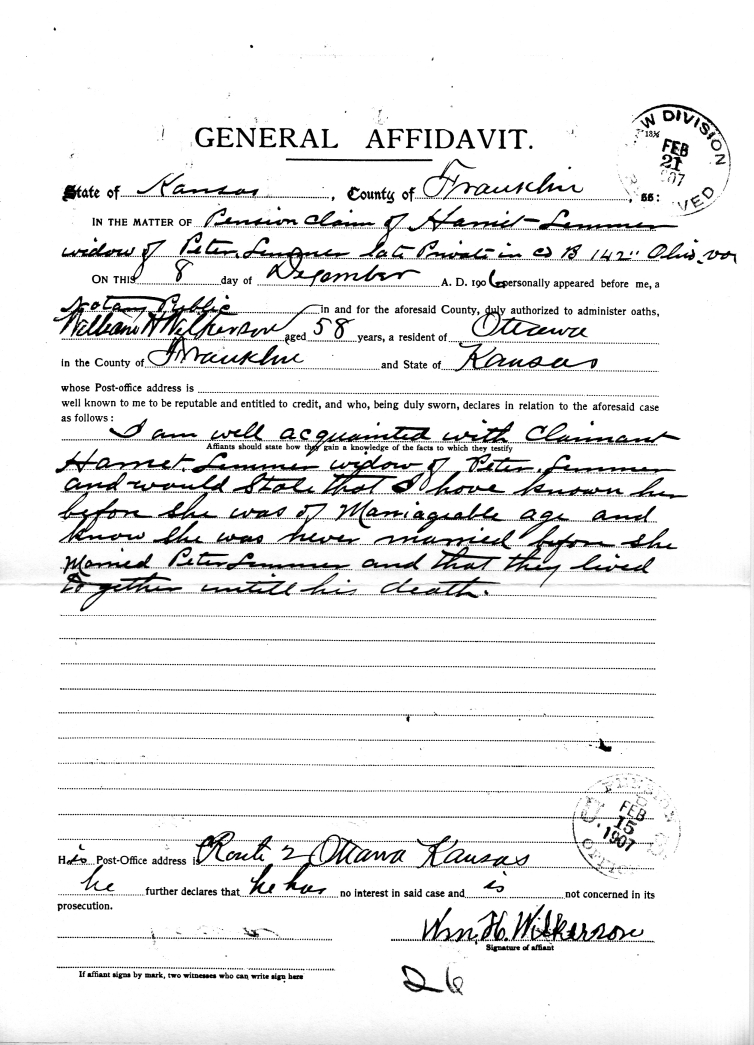 GENERAL AFFIDAVIT.
W DIVISION
FEB
21
907
VED
State of Kansas, County of Franklin, ss:
IN THE MATTER OF Pension claim of Harriet Lemmer
widow of Peter Lemmer late Private in co B 142" Ohio vol
ON THIS 8 day of December A. D. 1906 personally appeared before me, a
Notary Public in and for the aforesaid County, duly authorized to administer oaths,
William H Wilkerson aged 58 years, a resident of Ottawa
in the County of Franklin and State of Kansas
whose Post-office address is
well known to me to be reputable and entitled to credit, and who, being duly sworn, declares in relation to the aforesaid case
as follows:
I am well acquainted with Claimant
Affiants should state how they gain a knowledge of the facts to which they testify
Harriet Lemmer widow of Peter Lemmer
and would State that I have known her
before she was of Marriageable age and
know she was never married before she
Married Peter Lemmer and that they lived
together untill his death.
U. PENSION OFFICE
FEB
15
1907
His Post-Office address is Route 2 Ottawa Kansas
he further declares that he has no interest in said case and is not concerned in its
prosecution.
Wm. H. Wilkerson
Signature of affiant
If affiant signs by mark, two witnesses who can write sign here
26